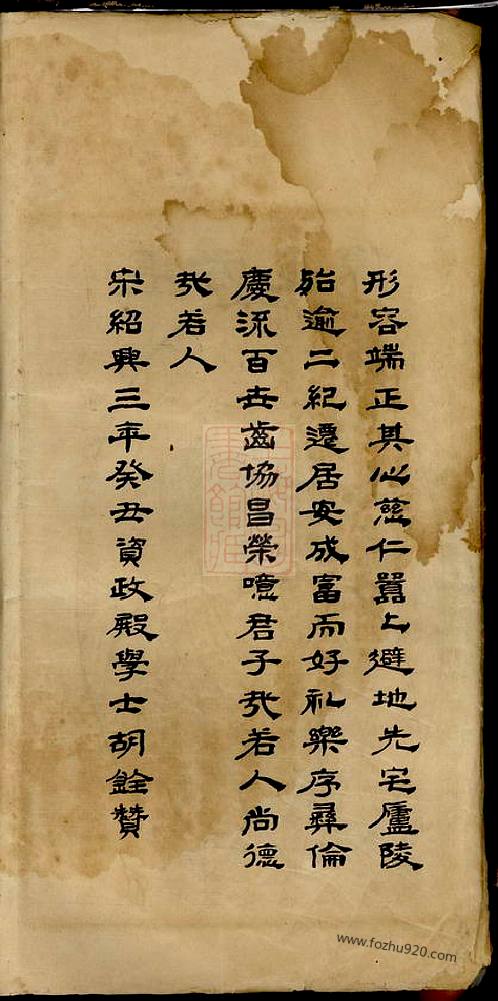 形容端正其心慈仁囂上避地先宅廬陵
殆逾二紀遷居安成富而好礼樂序彝倫
慶流百世齒協昌榮噫君子哉若人尚德
哉若人
宋紹興三年癸丑資政殿學士胡銓贊
上海圖書館藏
www.fozhu920.com